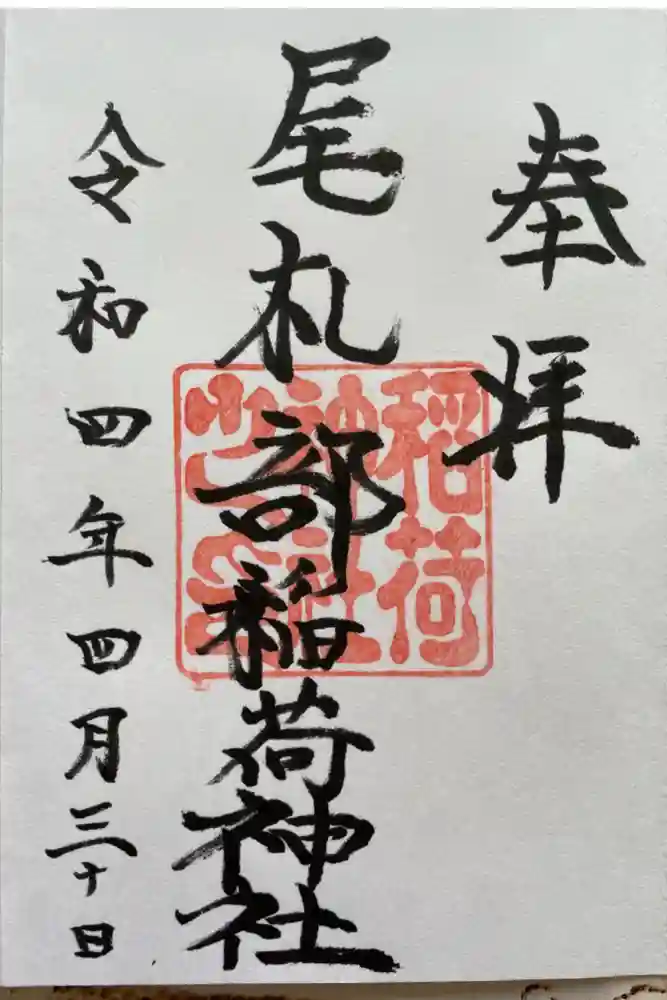 奉拝
尾札部稲荷神社
稲荷
神社
令和四年四月三十日